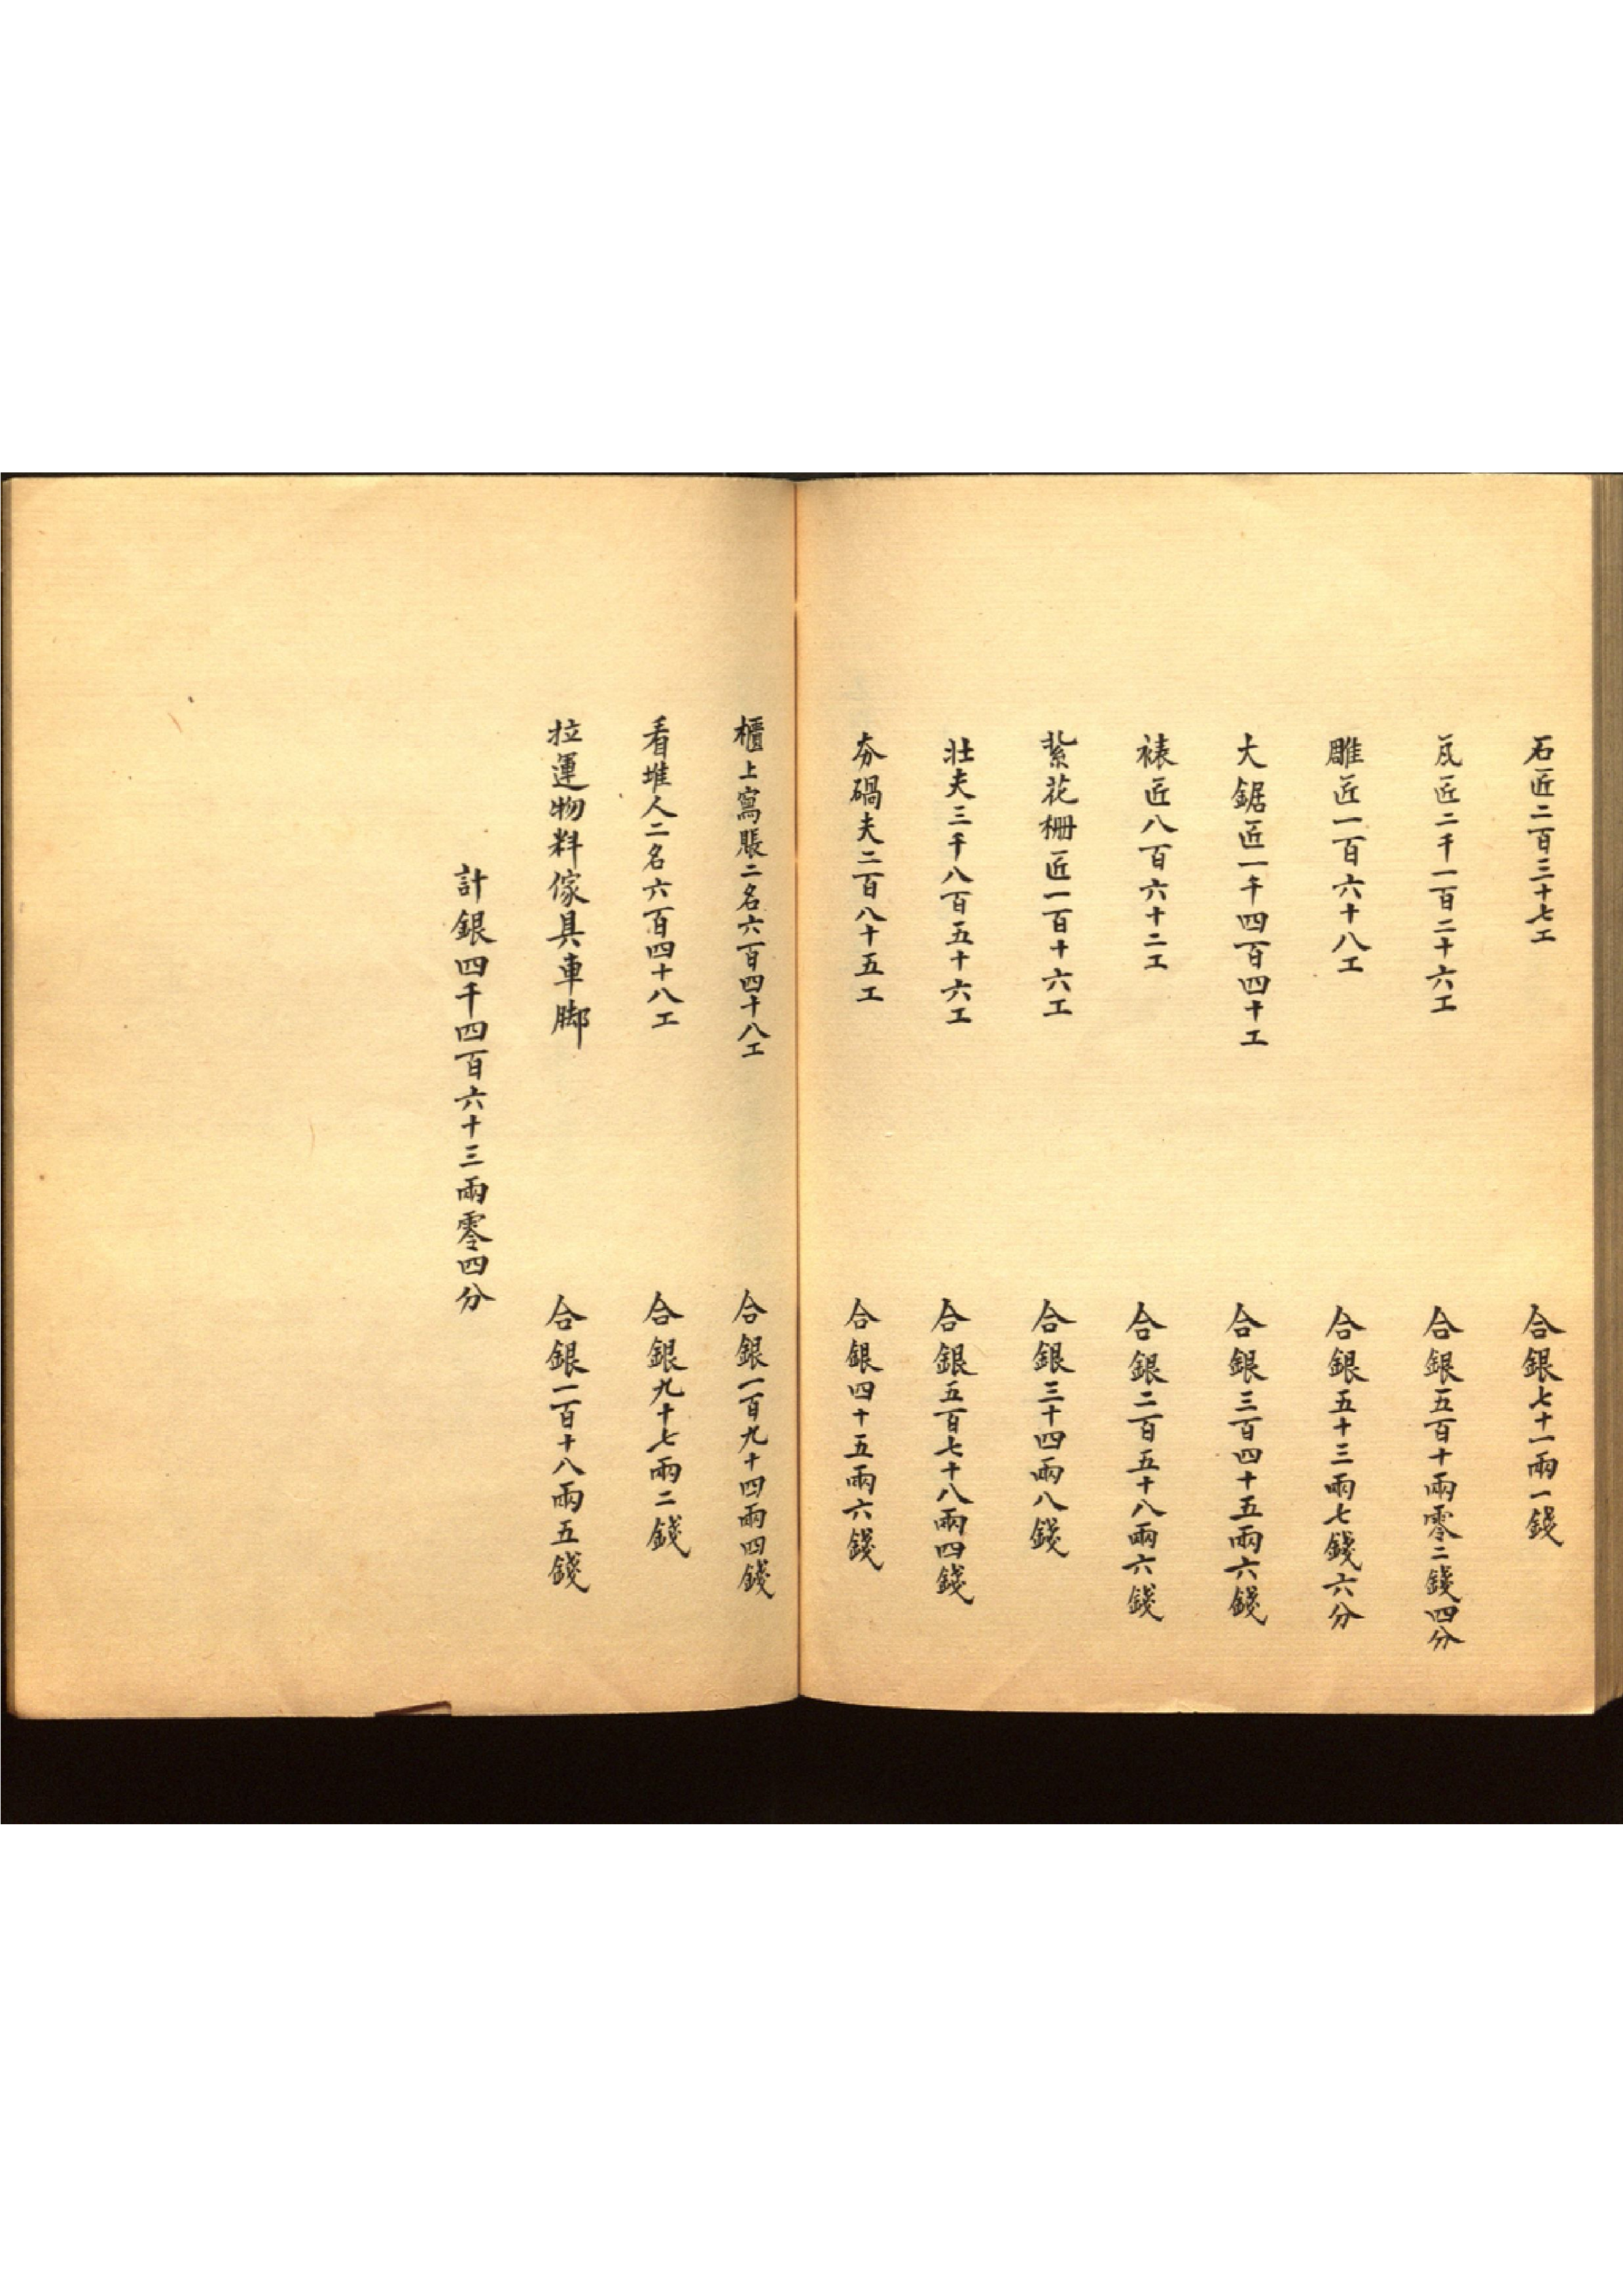 石匠二百三十七工　合銀七十一兩一錢
瓦匠二千一百二十六工　合銀五百十兩零二錢四分
雕匠一百六十八工　合銀五十三兩七錢六分
大鋸匠一千四百四十工　合銀三百四十五兩六錢
裱匠八百六十二工　合銀二百五十八兩六錢
紮花柵匠一百十六工　合銀三十四兩八錢
壯夫三千八百五十六工　合銀五百七十八兩四錢
夯碢夫二百八十五工　合銀四十五兩六錢
櫃上寫賬二名六百四十八工　合銀一百九十四兩四錢
看堆人二名六百四十八工　合銀九十七兩二錢
拉運物料傢具車脚　合銀一百十八兩五錢
計銀四千四百六十三兩零四分